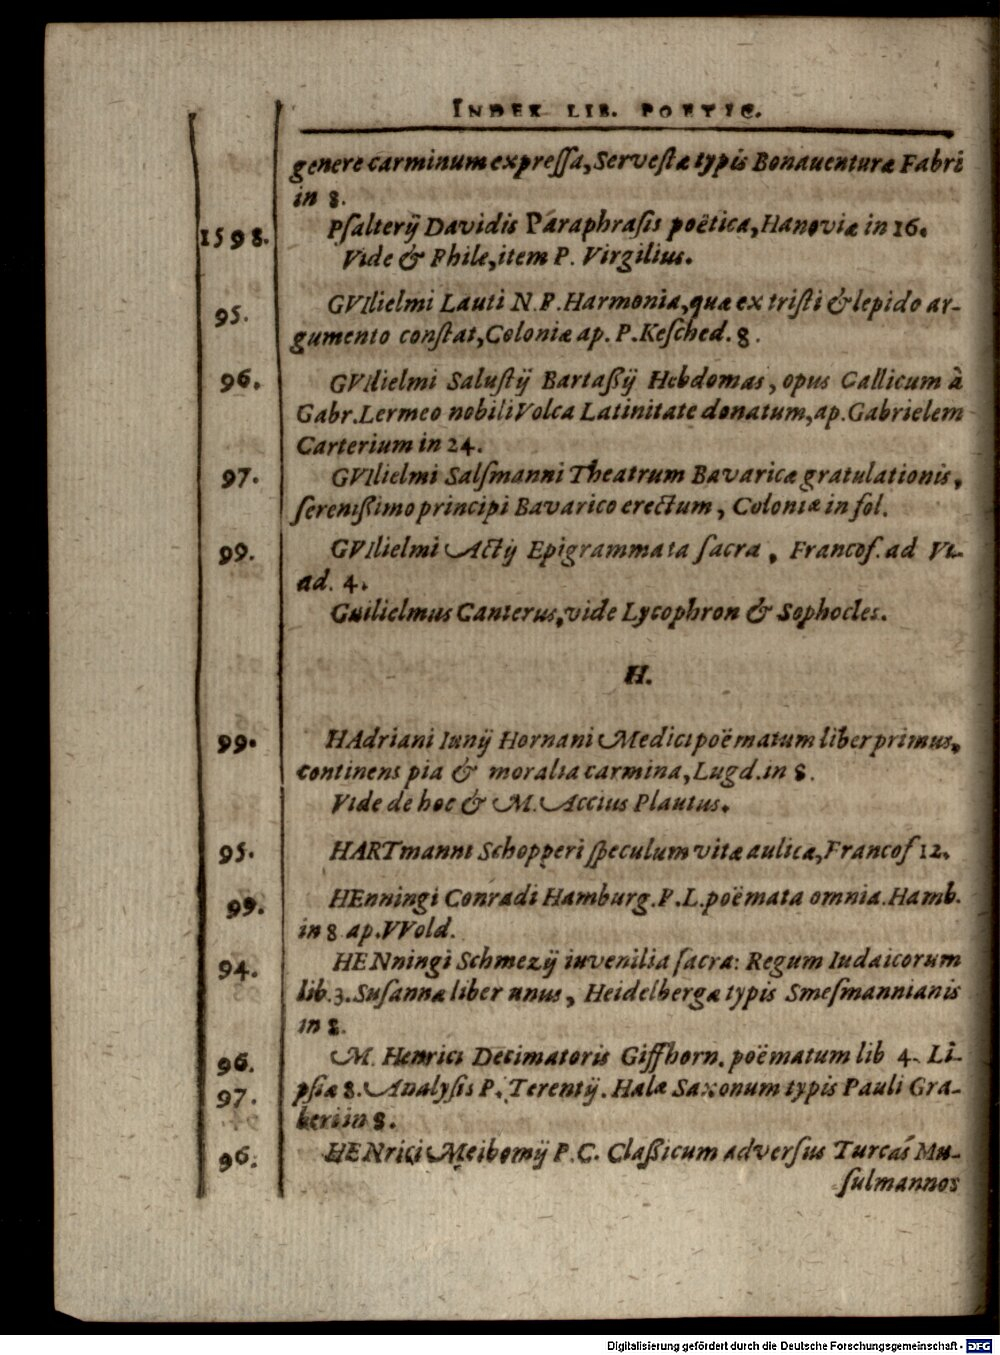 INDEX LIB. POETIC.
genere carminum expreſſa, Serveſtæ typis Bonauenturæ Fabri
in 8.
1598. Pſalterij Davidis Paraphraſis poëtica, Hanoviæ in 16.
Vide & Phile, item P. Virgilius.
95. GVIlielmi Lauti N.P. Harmonia, quæ ex triſti & lepido ar-
gumento conſtat, Coloniæ ap. P. Keſched. 8.
96. GVIlielmi Saluſtij Bartaßij Hebdomas, opus Gallicum à
Gabr. Lermeo nobili Volca Latinitate donatum, ap. Gabrielem
Carterium in 24.
97. GVIlielmi Salſmanni Theatrum Bavaricæ gratulationis,
ſerenißimo principi Bavarico erectum, Coloniæ in fol.
99. GVIlielmi Actij Epigrammata ſacra, Francof. ad Vi-
ad. 4.
Guilielmus Canterus, vide Lycophron & Sophocles.
H.
99. HAdriani Iunij Hornani Medici poëmatum liber primus,
continens pia & moralia carmina, Lugd. in 8.
Vide de hoc & M. Accius Plautus.
95. HARTmanni Schopperi ſpeculum vitæ aulicæ, Francof 12.
99. HEnningi Conradi Hamburg. P.L. poëmata omnia. Hamb.
in 8 ap. VVold.
94. HENningi Schmezij iuvenilia ſacra: Regum Iudaicorum
lib. 3. Suſannæ liber unus, Heidelbergæ typis Smeſmannianis
in 8.
96. M. Henrici Decimatoris Giffhorn. poëmatum lib 4. Li-
97. pſiæ 8. Analyſis P. Terentij. Halæ Saxonum typis Pauli Gra-
beri in 8.
96. HENrici Meibomij P.C. Claßicum adverſus Turcas Mu-
ſulmannos
Digitalisierung gefördert durch die Deutsche Forschungsgemeinschaft - DFG